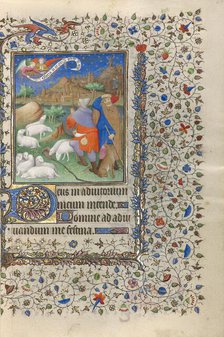 Deus in adiutorium
meum intende.
Domine ad adiu
uandum me festina.